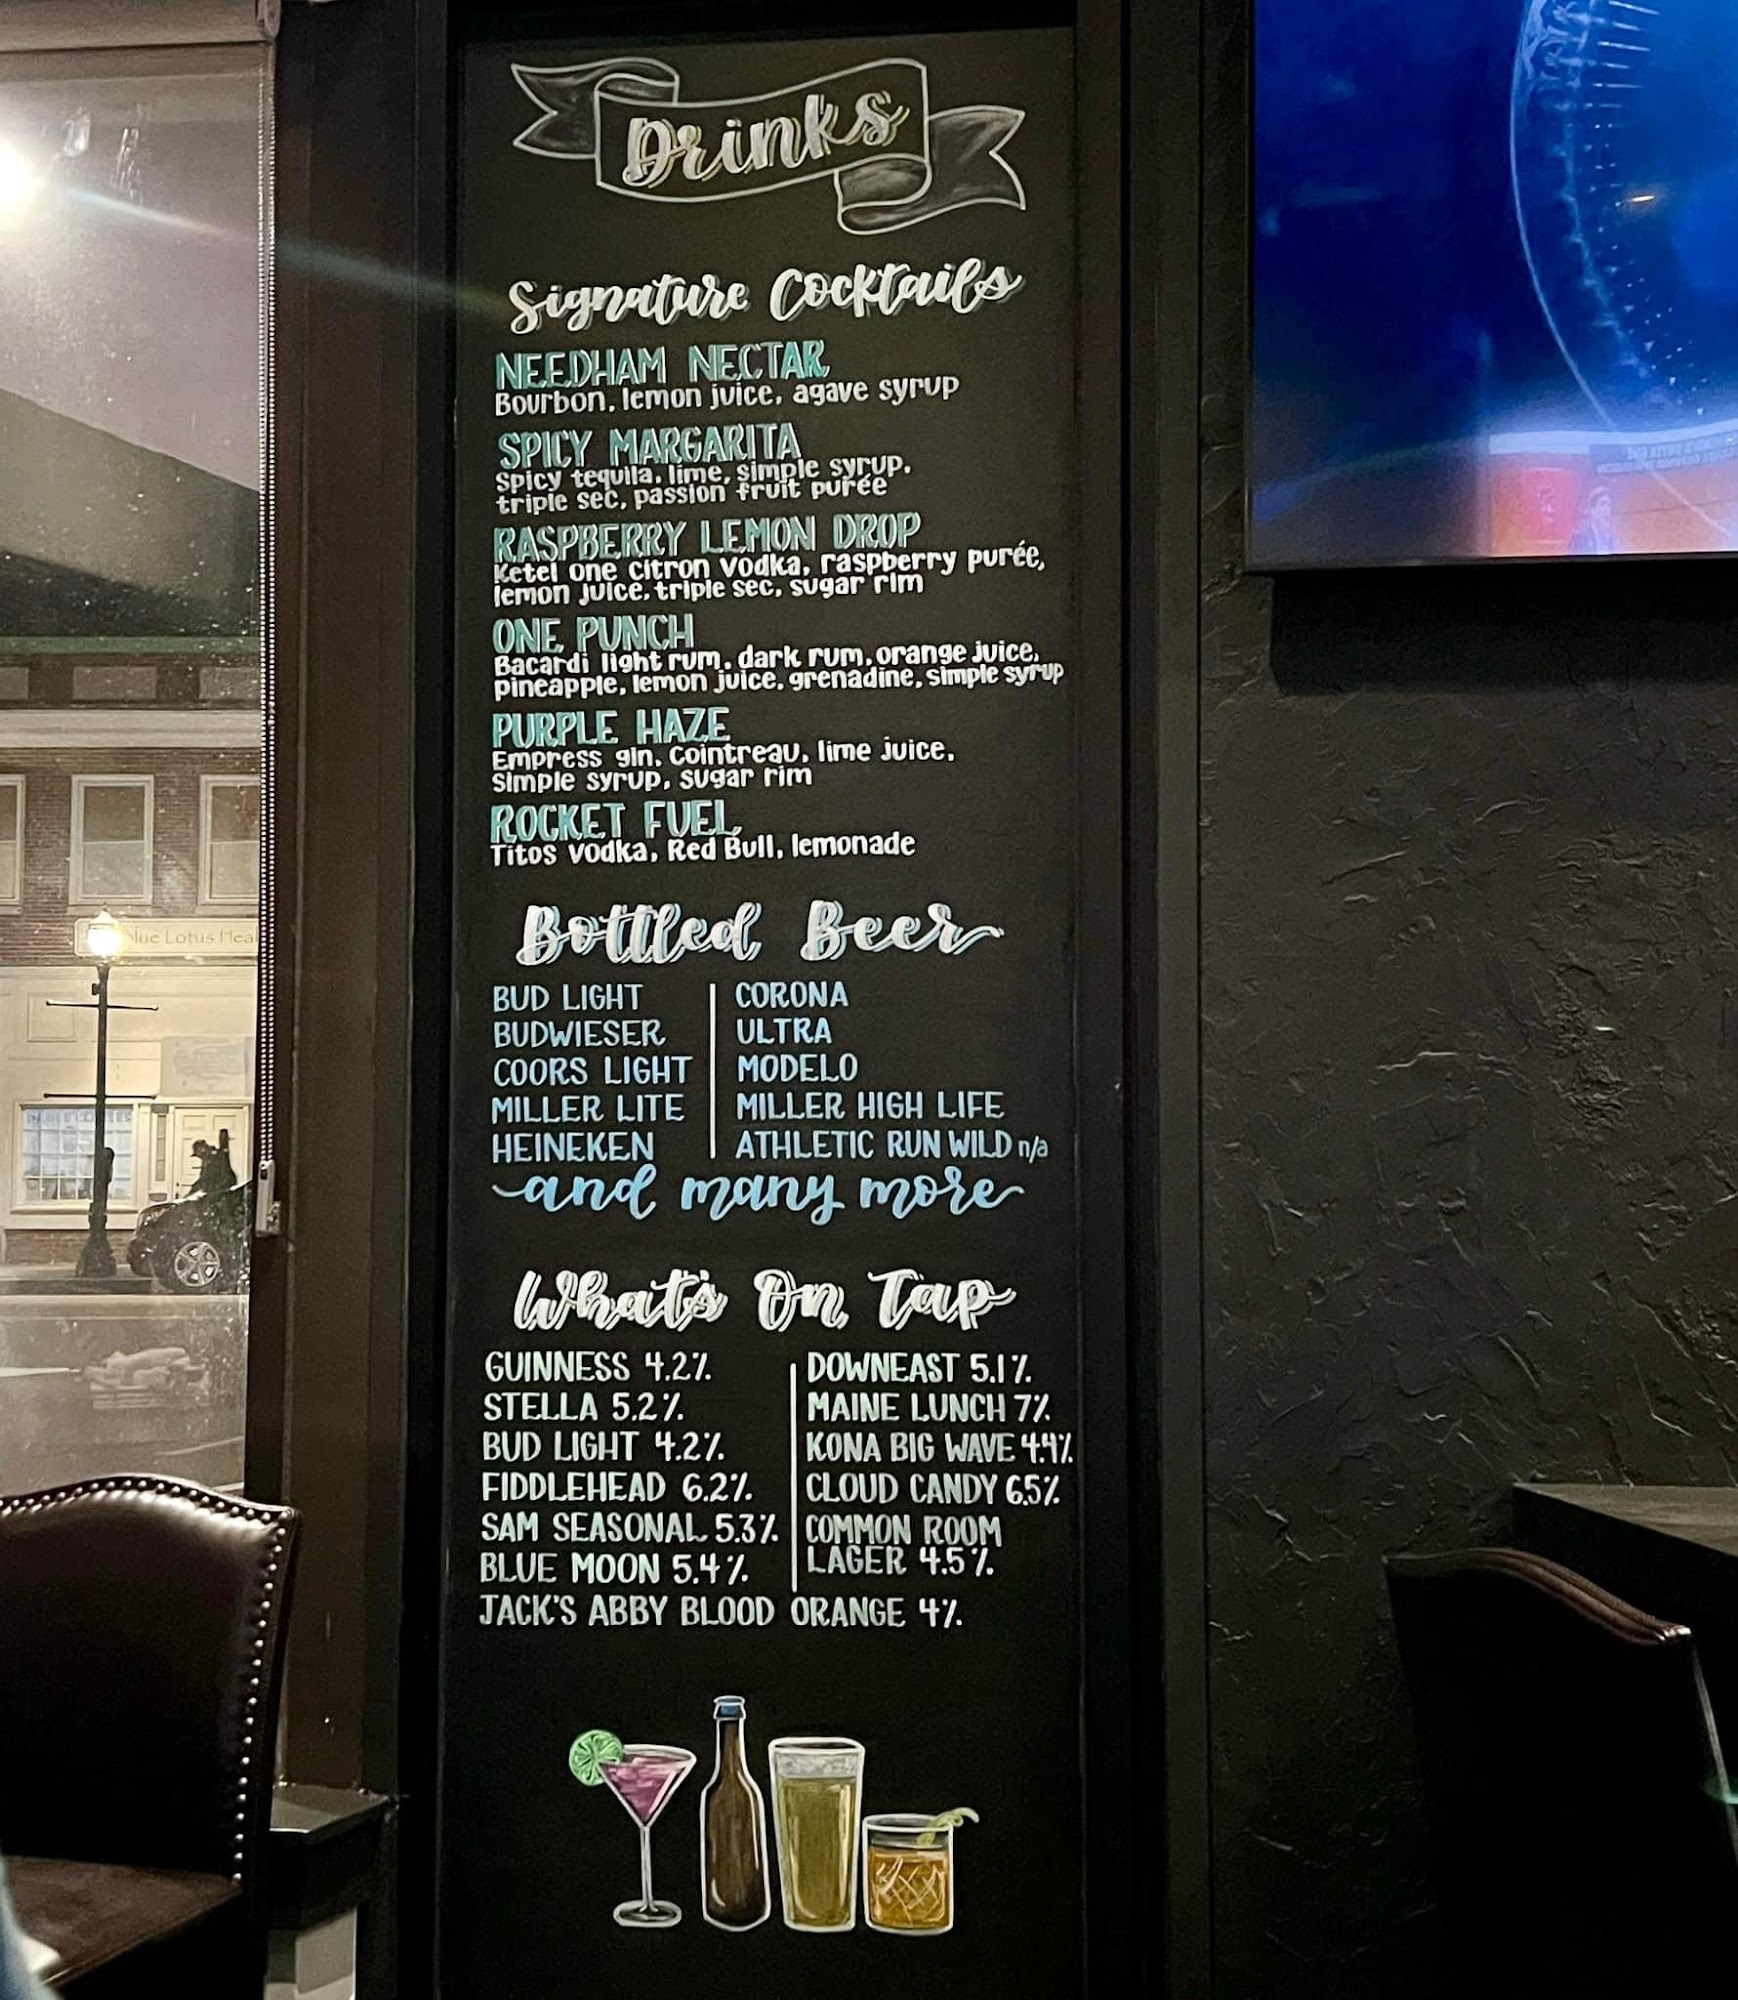 Drinks
Signature Cocktails
NEEDHAM NECTAR
Bourbon, lemon juice, agave syrup
SPICY MARGARITA
Spicy tequila, lime, simple syrup,
triple sec, passion fruit purée
RASPBERRY LEMON DROP
Ketel one citron vodka, raspberry purée,
lemon juice, triple sec, sugar rim
ONE PUNCH
Bacardi light rum, dark rum, orange juice,
pineapple, lemon juice, grenadine, simple syrup
PURPLE HAZE
Empress gin, Cointreau, lime juice,
Simple syrup, sugar rim
ROCKET FUEL
Titos vodka, Red Bull, lemonade
Bottled Beer
BUD LIGHT
BUDWIESER
COORS LIGHT
MILLER LITE
HEINEKEN
CORONA
ULTRA
MODELO
MILLER HIGH LIFE
ATHLETIC RUN WILD n/a
and many more
What's On Tap
GUINNESS 4.2%
STELLA 5.2%
BUD LIGHT 4.2%
FIDDLEHEAD 6.2%
SAM SEASONAL 5.3%
BLUE MOON 5.4%
DOWNEAST 5.1%
MAINE LUNCH 7%
KONA BIG WAVE 4.4%
CLOUD CANDY 6.5%
COMMON ROOM
LAGER 4.5%
JACK'S ABBY BLOOD ORANGE 4%
Blue Lotus